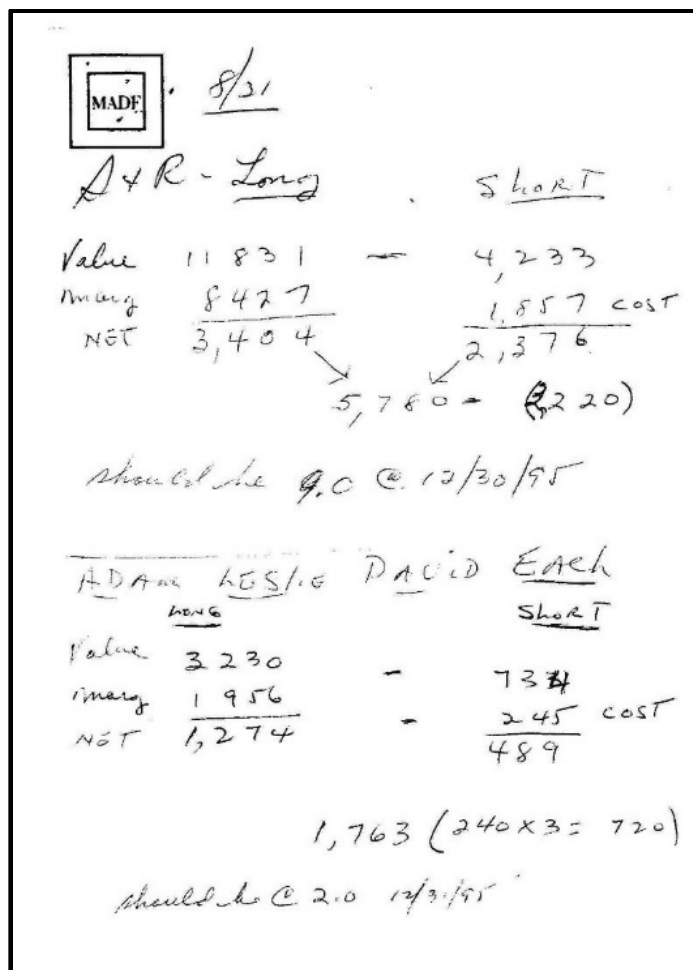 MADF 8/31
A + R - Long SHORT
Value 11831 - 4,233
marg 8427 1,857 COST
NET 3,404 2,376
5,780 - (3,220)
should be 9.0 @ 12/30/95
ADAM LESLIE DAVID EACH
LONG SHORT
Value 3230 - 734
marg 1956 - 245 COST
NET 1,274 489
1,763 (240 x 3 = 720)
should be @ 2.0 12/31/95